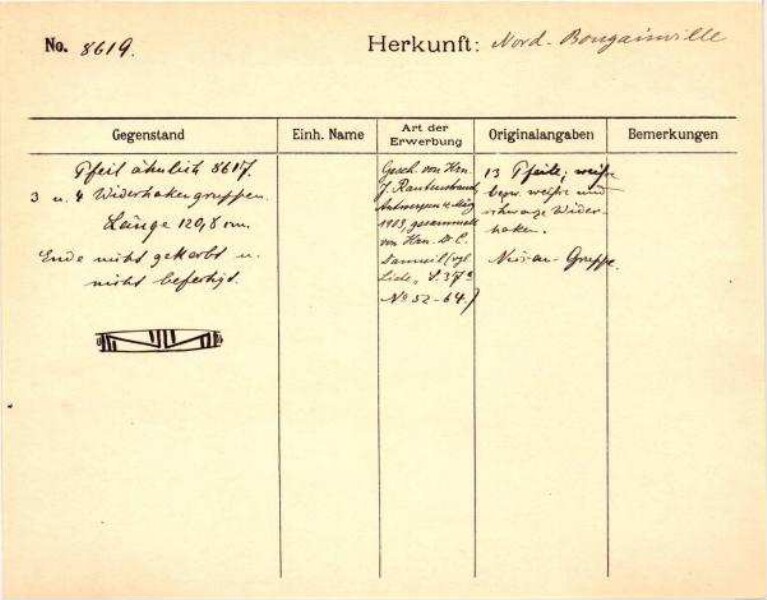 No. 8619.
Herkunft: Nord-Bougainville
Gegenstand
Einh. Name
Art der Erwerbung
Originalangaben
Bemerkungen
Pfeil ähnlich 8617.
3 u. 4 Widerhakengruppen.
Länge 120,8 cm.
Ende nicht gekerbt u.
nicht befestigt.
Gesch. von Hrn.
J. Rautenstrauch,
Antwerpen
1903, gesammelt
von Hrn. Dr. C.
(vgl.
Liste, S. 37
No 52-64.)
13 Pfeile; weiße
bezw. weiße und
schwarze Wider-
haken.
Nissan-Gruppe.